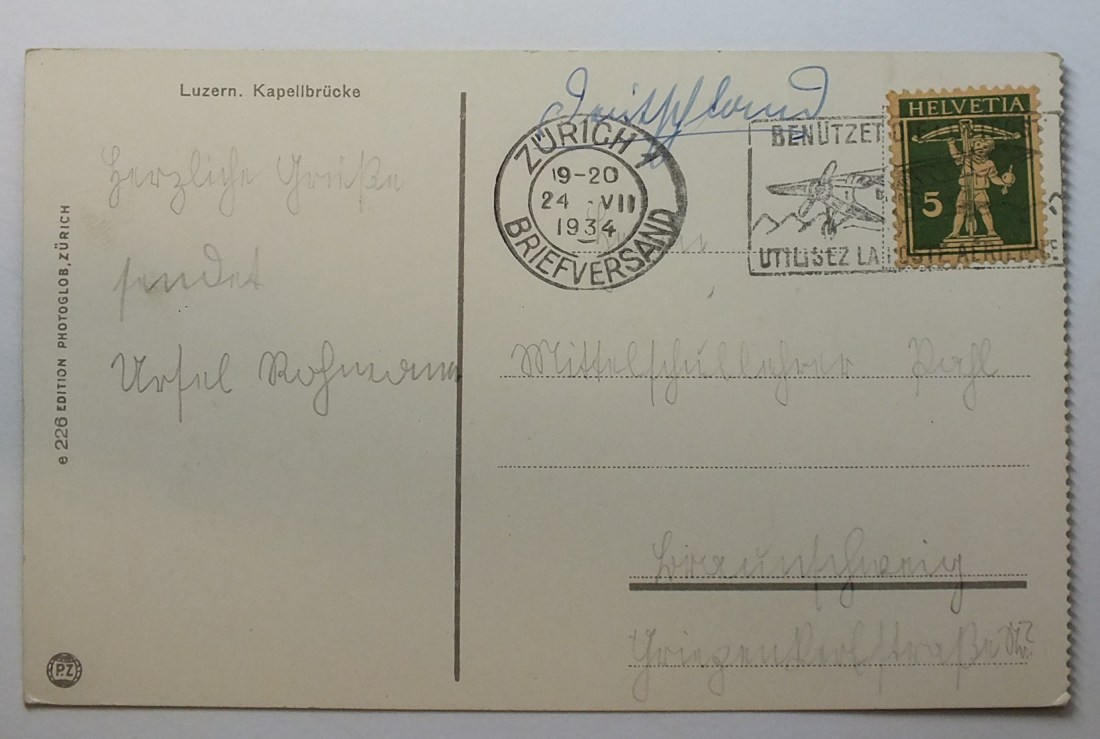 Luzern. Kapellbrücke
Herzliche Grüße
sendet
Ursel Rohmann
e 226 EDITION PHOTOGLOB, ZÜRICH
P.Z
Deutschland
ZÜRICH 1
19-20
24 . VII
1934
BRIEFVERSAND
BENÜTZET
UTILISEZ LA POSTE AÉRIENNE
HELVETIA
5
Herrn
Mittelschullehrer Pahl
Braunschweig
Griepenkerlstraße